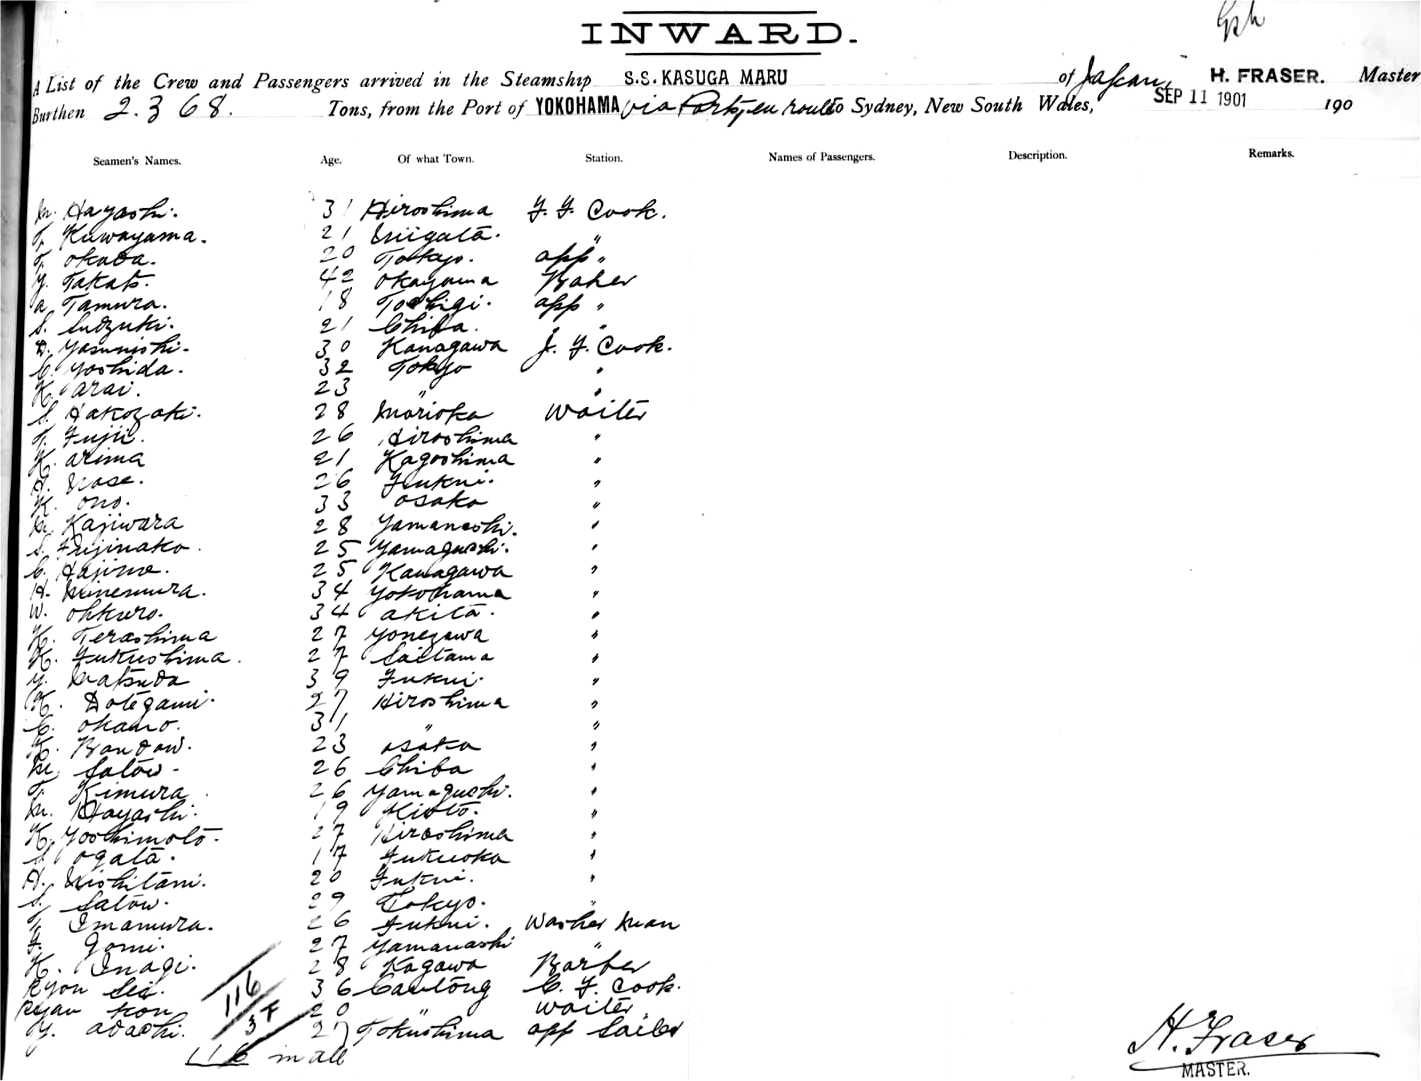 Gph
INWARD.
A List of the Crew and Passengers arrived in the Steamship S.S. KASUGA MARU of Japan, H. FRASER. Master
Burthen 2.368. Tons, from the Port of YOKOHAMA via Ports, en route to Sydney, New South Wales, SEP 11 1901 190
Seamen's Names. Age. Of what Town. Station. Names of Passengers. Description. Remarks.
M. Hayashi. 31 Hiroshima F. F. Cook.
T. Kuwayama. 21 Niigata. "
T. Okada. 20 Tokyo. app "
Y. Takato. 42 Okayama Baker
A. Tamura. 18 Tochigi. app "
S. Sudzuki. 21 Chiba. "
D. 30 Kanagawa J. F. Cook.
C. Yoshida. 32 Tokyo "
K. Arai. 23 " "
S. Hakozaki. 28 Morioka Waiter
T. Fujii. 26 Hiroshima "
K. Arima 21 Kagoshima "
Nose. 26 Fukui. "
K. Ono. 33 Osaka "
M. Kajiwara 28 Yamaneshi. "
S. Fujinako. 25 Yamaguchi. "
C. Hajime. 25 Kanagawa "
H. Minemura. 34 Yokohama "
W. Ohkuro. 34 Akita. "
K. Terashima 27 Yonezawa "
K. Fukushima. 27 Saitama "
Y. Matsuda 39 Fukui. "
K. Dotegami. 27 Hiroshima "
C. Okano. 31 " "
K. Bandow. 23 Osaka "
M. Satow. 26 Chiba "
T. Kimura 26 Yamaguchi. "
M. Hayashi. 19 Kioto. "
K. Yoshimoto. 27 Hiroshima "
S. Ogata. 17 Fukuoka "
H. Nishitani. 20 Fukui. "
S. Satow. 29 Tokyo. "
T. Imamura. 26 Fukui. Washer man
F. Gomi. 27 Yamanashi "
K. Inagi. 28 Kagawa Barber
Ryou Sei. 36 Cantong C. F. Cook.
Ryau Kon 20 " Waiter
Y. Adachi. 27 Tokushima app Sailor
116
37
116 in all
H. Fraser
MASTER.